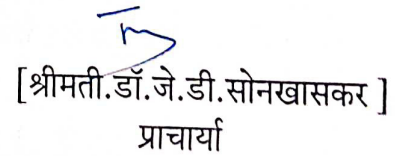 [श्रीमती.डॉ.जे.डी.सोनखासकर ]
प्राचार्या